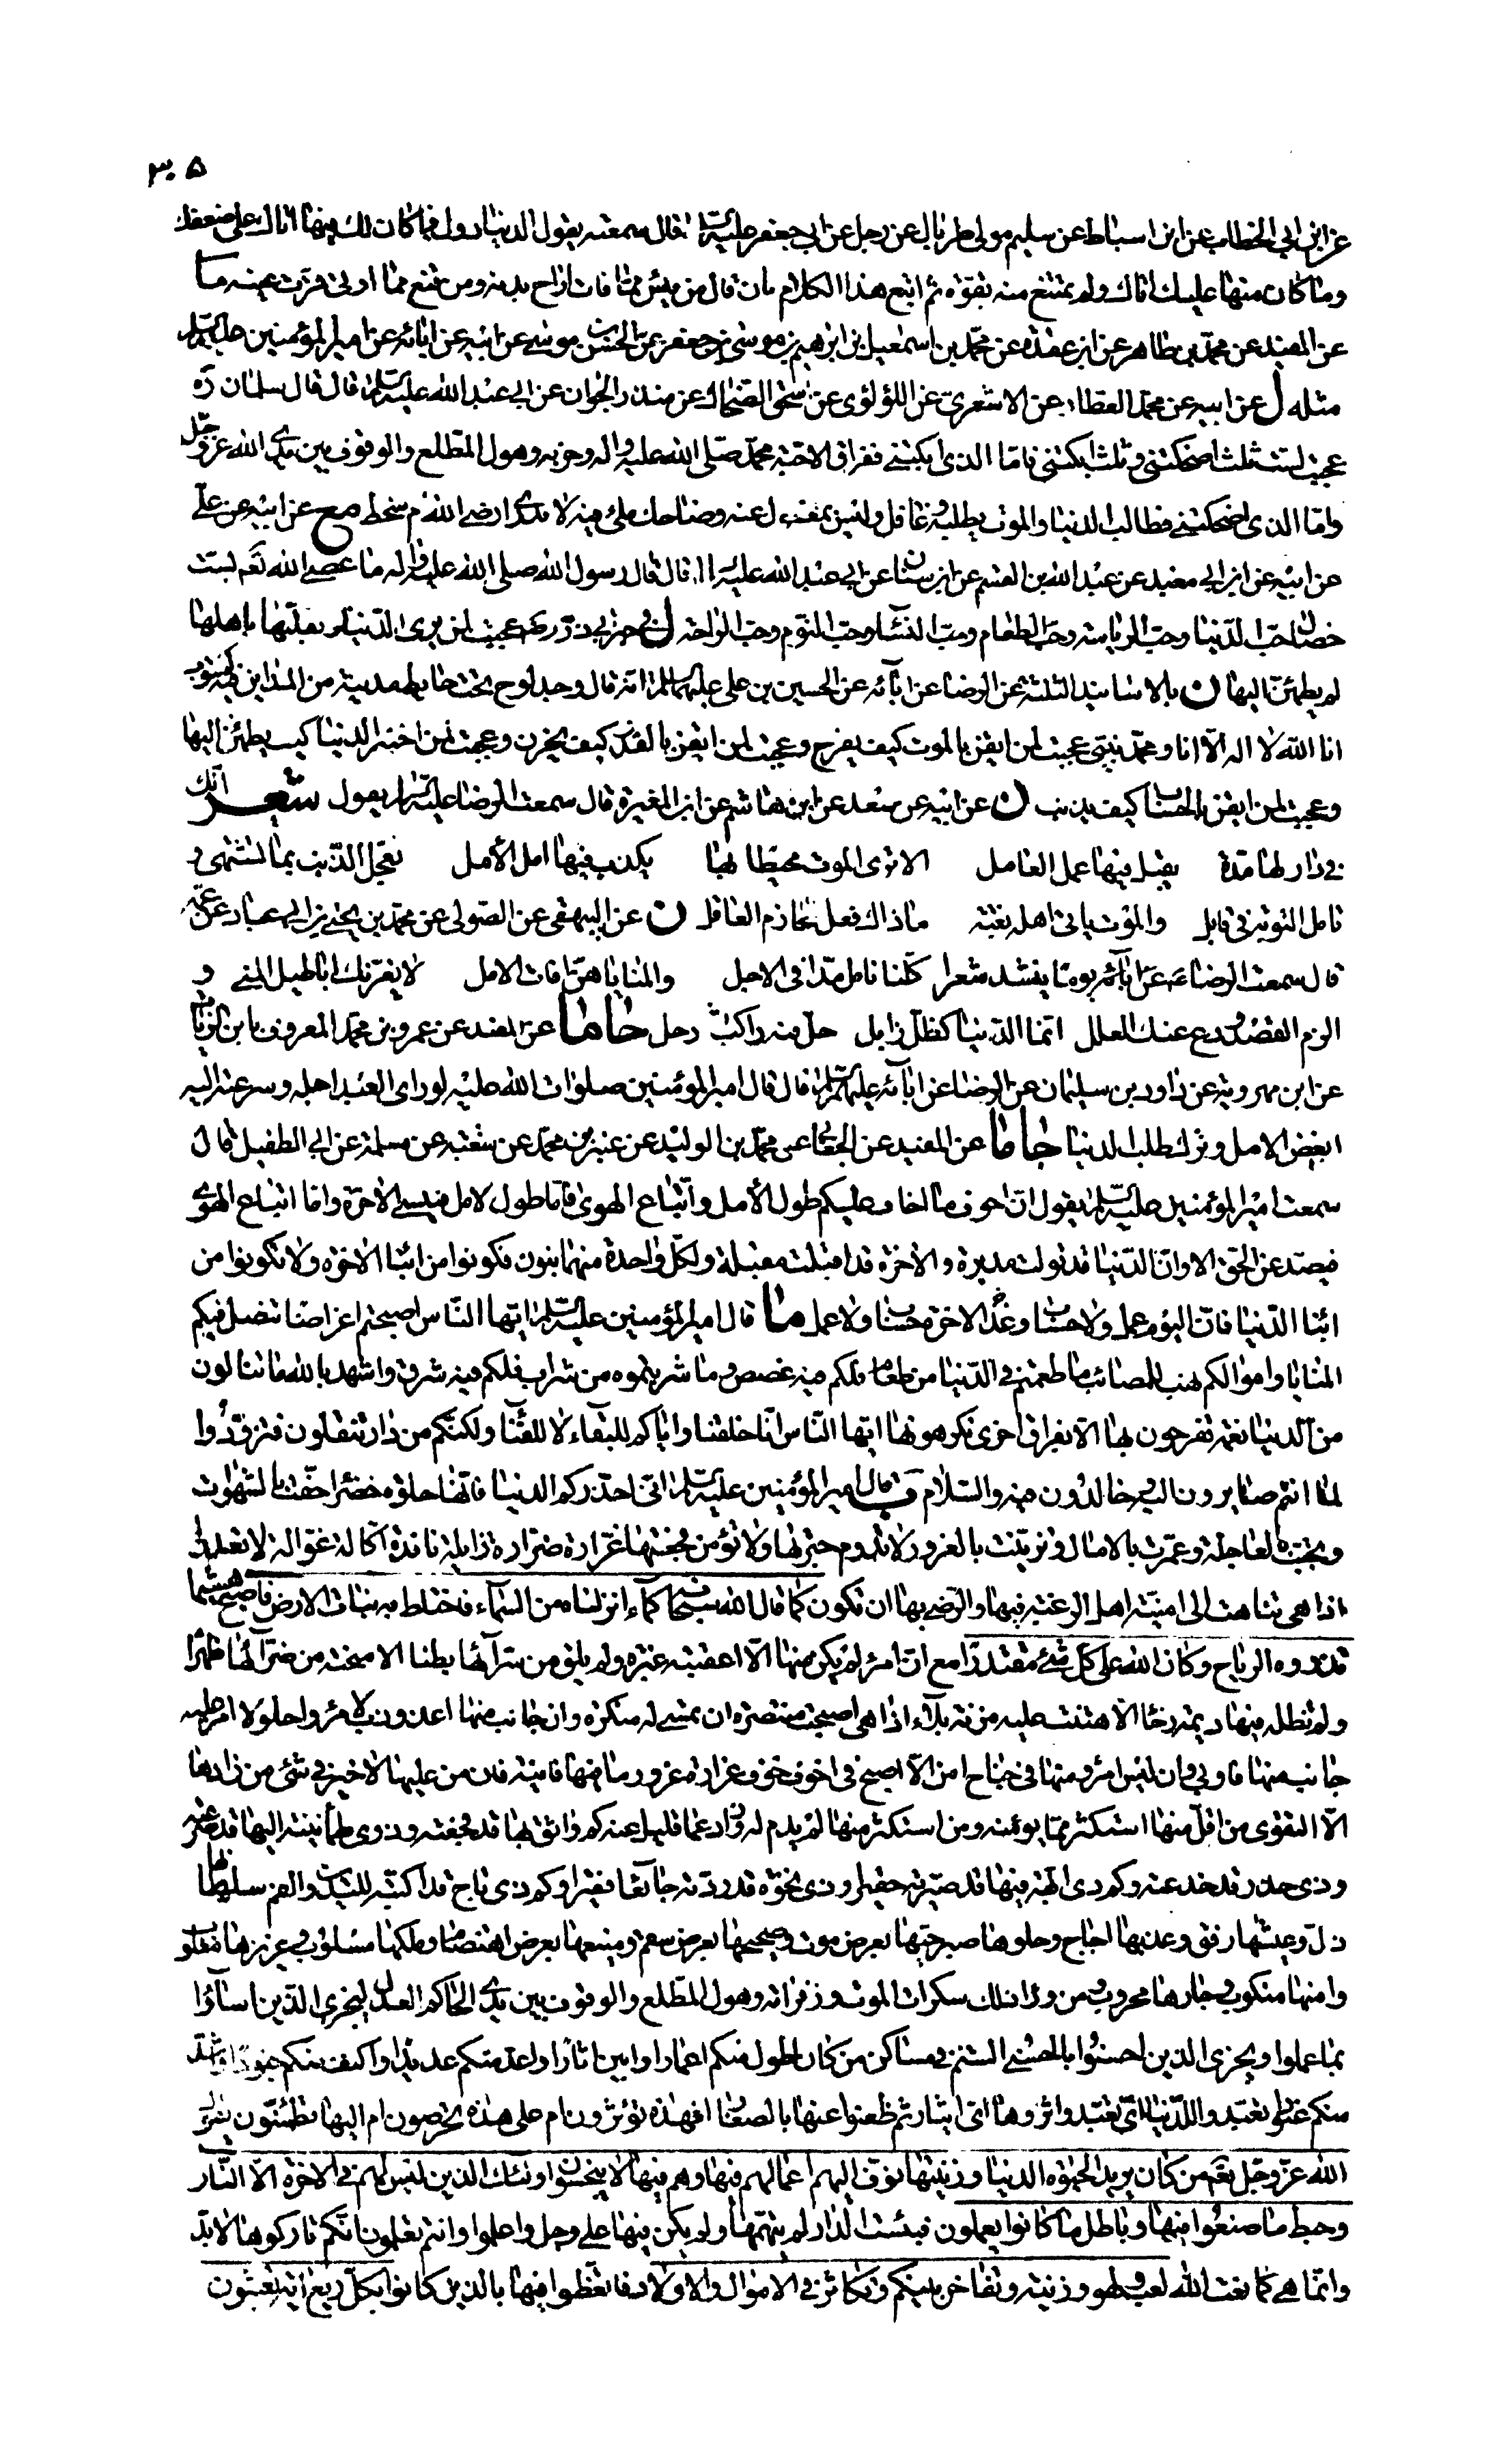 ٣٠٥
عن ابن ابي الخطاب عن ابن اسباط عن سليم مولى طربال عن رجل عن ابي جعفر عليه السلام قال سمعته يقول الدنيا دول فما كان لك فيها اتاك على ضعفك
وما كان منها عليك اتاك ولم يمتنع منه بقوة ثم اتبع هذا الكلام بان قال من يئس مما فات اراح بدنه ومن قنع بما اوتى قرت عينه ما
عن المفيد عن محمد بن طاهر عن ابن عقدة عن محمد بن اسمعيل بن ابراهيم بن موسى بن جعفر عن الحسن بن موسى عن ابيه عن ابائه عن امير المؤمنين عليه السلام
مثله ل عن ابيه عن محمد العطار عن الاشعرى عن اللؤلؤى عن اسحق الضحاك عن منذر الجوان عن ابي عبد الله عليه السلام قال قال سلمان ره
عجبت لست ثلث اضحكتنى وثلث ابكتنى فاما الذى ابكتنى ففراق الاحبة محمد صلى الله عليه واله وحزبه وهول المطلع والوقوف بين يدى الله عز وجل
واما الذى اضحكتنى فطالب الدنيا والموت يطلبه وغافل وليس بمغفول عنه وضاحك ملئ فيه لا يدرى ارضى الله ام سخط مع عن ابيه عن على
عن ابيه عن ابن ابي معبد عن عبد الله بن القسم عن ابن سنان عن ابي عبد الله عليه السلام قال قال رسول الله صلى الله عليه واله ما عصى الله تعم بست
خصال حب الدنيا وحب الرياسة وحب الطعام وحب النساء وحب النوم وحب الراحة ل في خبر ابي ذر ره عجبت لمن يرى الدنيا وتقلبها باهلها
لم يطمئن اليها ن بالاسانيد الثلثة عن الرضا عن ابائه عن الحسين بن على عليهما السلام انه قال وجد لوح تحت حايط مدينة من المداين فيه مكتوب
انا الله لا اله الا انا ومحمد نبيى عجبت لمن ايقن بالموت كيف يفرح وعجبت لمن ايقن بالقدر كيف يحزن وعجبت لمن اختبر الدنيا كيف يطمئن اليها
وعجبت لمن ايقن بالحساب كيف يذنب ن عن ابيه عن سعد عن ابن هاشم عن ابن المغيرة قال سمعت الرضا عليه السلام يقول شعر انك
فى دار لها مدة يقبل فيها عمل العامل الا ترى الموت محيطا بها يكذب فيها امل الامل تعجل الذنب بما تشتهى و
تامل التوبة فى قابل والموت ياتى اهله بغتة ماذاك فعل الحازم العاقل ن عن البيهقى عن الصولى عن محمد بن يحيى بن ابي عباد عن عمه
قال سمعت الرضا ع يوما ينشد شعرا كلنا نامل مدا فى الاجل والمنايا هن افات الامل لا يغرنك اباطيل المنى و
الزم القصد ودع عنك العلل انما الدنيا كظل زايل حل فيه راكب رحل جاما عن المفيد عن عمرو بن محمد المعروف بابن الزيات
عن ابن مهرويه عن داود بن سليمان عن الرضا عن ابائه عليهم السلام قال قال امير المؤمنين صلوات الله عليه لو راى العبد اجله وسرعته اليه
ابغض الامل وترك طلب الدنيا جاما عن المفيد عن الجعابى عن محمد بن الوليد عن عنبر بن محمد عن شعبة عن مسلمة عن ابي الطفيل قال
سمعت امير المؤمنين عليه السلام يقول ان اخوف ما اخاف عليكم طول الامل واتباع الهوى فاما طول الامل فينسى الاخرة واما اتباع الهوى
فيصد عن الحق الا وان الدنيا قد تولت مدبرة والاخرة قد اقبلت مقبلة ولكل واحدة منهما بنون فكونوا من ابناء الاخرة ولا تكونوا من
ابناء الدنيا فان اليوم عمل ولا حساب وغدا الاخرة حساب ولا عمل ما قال امير المؤمنين عليه السلام ايها الناس اصبحتم اغراضا تنضل فيكم
المنايا واموالكم نهب للمصائب ما طعمتم فى الدنيا من طعام فلكم فيه غصص وما شربتموه من شراب فلكم فيه شرق واشهد بالله ما تنالون
من الدنيا نعمة تفرحون بها الا بفراق اخرى تكرهونها ايها الناس انا خلقنا واياكم للبقاء لا للفناء ولكنكم من دار تنقلون فتزودوا
لما انتم صايرون اليه وخالدون فيه والسلام ف قال امير المؤمنين عليه السلام انى احذركم الدنيا فانها حلوة خضرة حفت بالشهوات
وتحببت بالعاجلة وعمرت بالامال وتزينت بالغرور لا تدوم حبرتها ولا تؤمن فجعتها غرارة ضرارة زايلة نافدة اكالة غوالة لا تعد
اذا هى تناهت الى امنية اهل الرغبة فيها والرضى بها ان تكون كما قال الله سبحانه كماء انزلناه من السماء فاختلط به نبات الارض فاصبح هشيما
تذروه الرياح وكان الله على كل شئ مقتدرا مع ان امرء لم يكن منها الا اعقبته عبرة ولم يلق من سرائها بطنا الا منحته من ضرائها ظهرا
ولم تطله فيها ديمة رخاء الا هتنت عليه مزنة بلاء اذا هى اصبحت منتصرة ان تمسى له متنكرة وان جانب منها اعذوذب لامرئ واحلولا امر عليه
جانب منها فاوبى وان لبس امرؤ منها فى جناح امن الا اصبح فى اخوف خوف غرارة غرور ما فيها فانية فان من عليها لا خير فى شئ من زادها
الا التقوى من اقل منها استكثر مما يؤمنه ومن استكثر منها لم يدم له وزال عما قليل عنه كم واثق بها قد فجعته وذوى طمأنينة اليها قد صرعته
وذى حذر قد خدعته وكم ذى ابهة فيها قد صيرته حقيرا وذى نخوة قد ردته جائعا فقيرا وكم ذى تاج قد اكبته لليدين والفم سلطانها
ذل وعيشها رنق وعذبها اجاج وحلوها صبر حيها بعرض موت وصحيحها بعرض سقم ومنيعها بعرض اهتضام وملكها مسلوب وعزيزها مغلوب
وامنها منكوب وجارها محروب ومن وراء ذلك سكرات الموت وزفراته وهول المطلع والوقوف بين يدى الحاكم العدل ليجزى الذين اساؤا
بما عملوا ويجزى الذين احسنوا بالحسنى الستم فى مساكن من كان اطول منكم اعمارا وابين اثارا واعد منكم عديدا واكنف منكم جنودا واشد
منكم عنودا تعبدوا للدنيا اى تعبد واثروها اى ايثار ثم ظعنوا عنها بالصغار افهذه تؤثرون ام على هذه تحرصون ام اليها تطمئنون يقول
الله عز وجل تعم من كان يريد الحيوة الدنيا وزينتها نوف اليهم اعمالهم فيها وهم فيها لا يبخسون اولئك الذين ليس لهم فى الاخرة الا النار
وحبط ما صنعوا فيها وباطل ما كانوا يعملون فبئست الدار لم يتهمها ولم يكن فيها على وجل واعلموا وانتم تعلمون انكم تاركوها لا بد
وانما هى كما نعت الله لعب ولهو وزينة وتفاخر بينكم وتكاثر فى الاموال والاولاد فاتعظوا فيها بالذين كانوا بكل ريع اية تعبثون